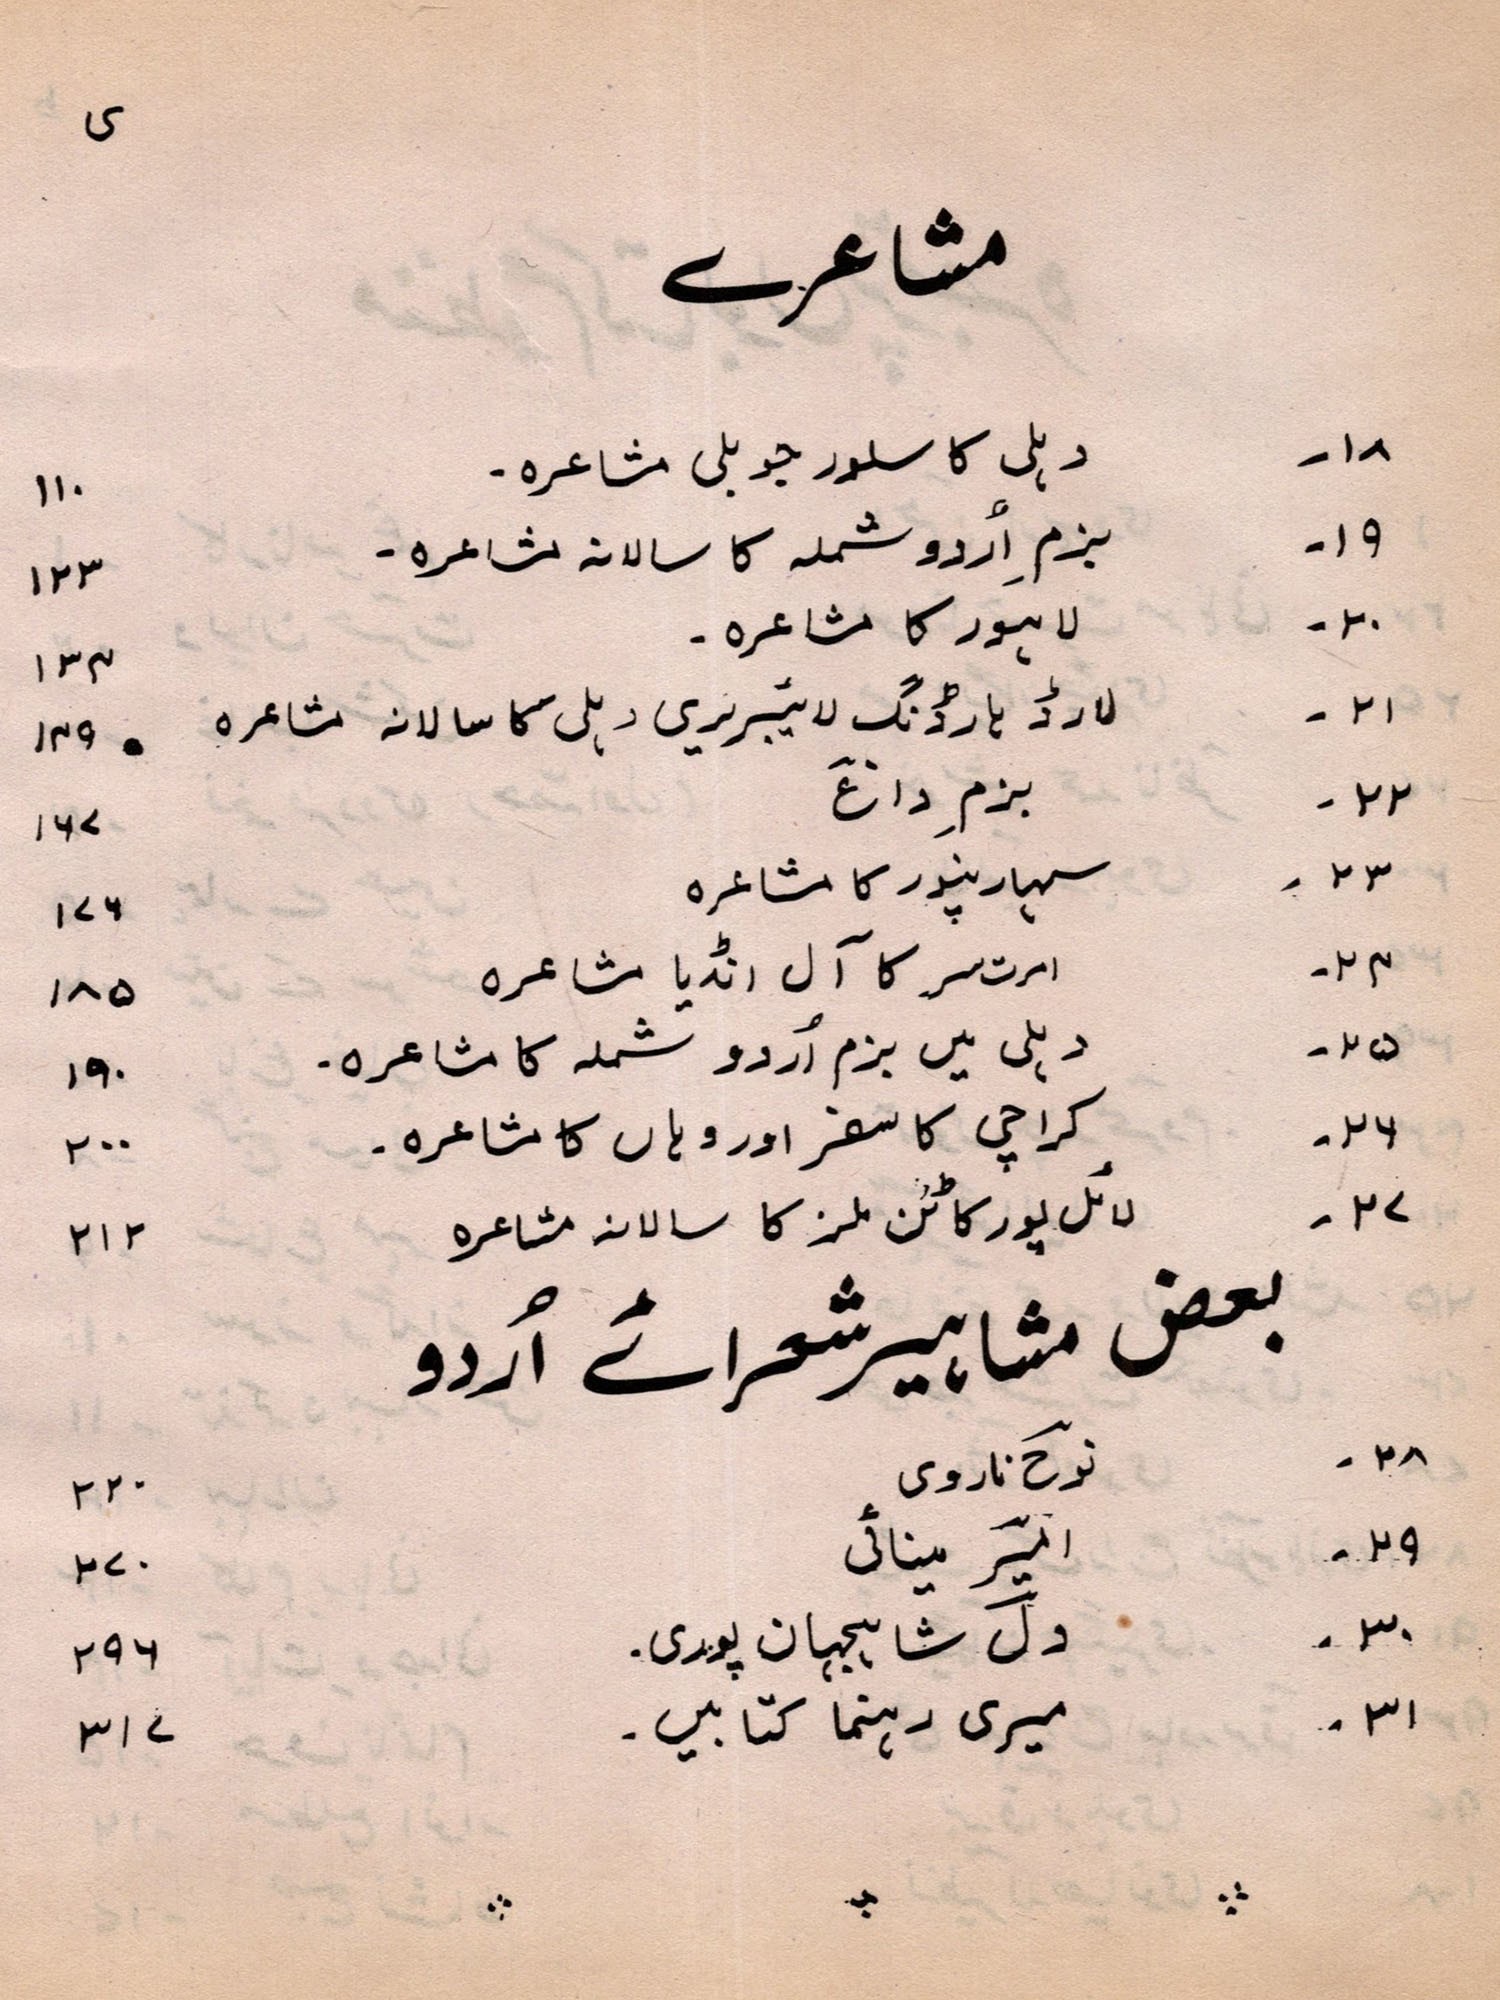 ی
مشاعرے
۱۸- دہلی کا سلور جوبلی مشاعرہ۔ ۱۱۰
۱۹- بزمِ اُردو شملہ کا سالانہ مشاعرہ۔ ۱۲۳
۲۰- لاہور کا مشاعرہ۔ ۱۳۴
۲۱- لارڈ ہارڈنگ لائیبریری دہلی کا سالانہ مشاعرہ ۱۴۹
۲۲- بزمِ داغؔ ۱۶۷
۲۳- سہارنپور کا مشاعرہ ۱۷۶
۲۴- امرت سر کا آل انڈیا مشاعرہ ۱۸۵
۲۵- دہلی میں بزم اُردو شملہ کا مشاعرہ۔ ۱۹۰
۲۶- کراچی کا سفر اور وہاں کا مشاعرہ۔ ۲۰۰
۲۷- لائل پور کاٹن ملز کا سالانہ مشاعرہ ۲۱۲
بعض مشاہیر شعرائے اُردو
۲۸- نوحؔ ناروی ۲۲۰
۲۹- امیرؔ مینائی ۲۷۰
۳۰- دلؔ شاہجہان پوری۔ ۲۹۶
۳۱- میری رہنما کتابیں۔ ۳۱۷